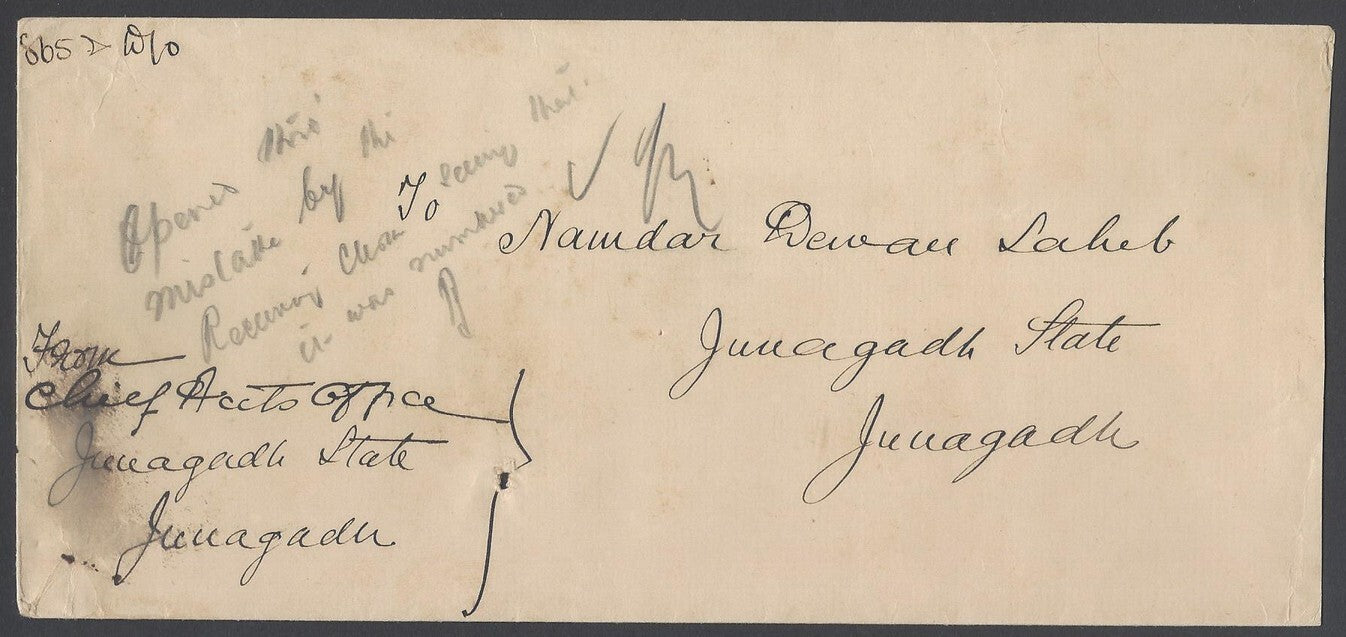 D/o
Opened this
mistake by the
Receiving Clerk seeing that
it was numbered
To
Namdar Dewan Saheb
Junagadh State
Junagadh
From
Chief Accts Office
Junagadh State
Junagadh